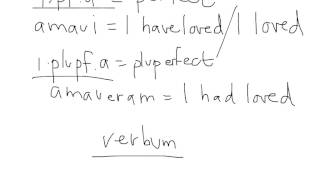 1.pf.a = perfect
amavi = I have loved / I loved
1.plupf.a = pluperfect
amaveram = I had loved
verbum